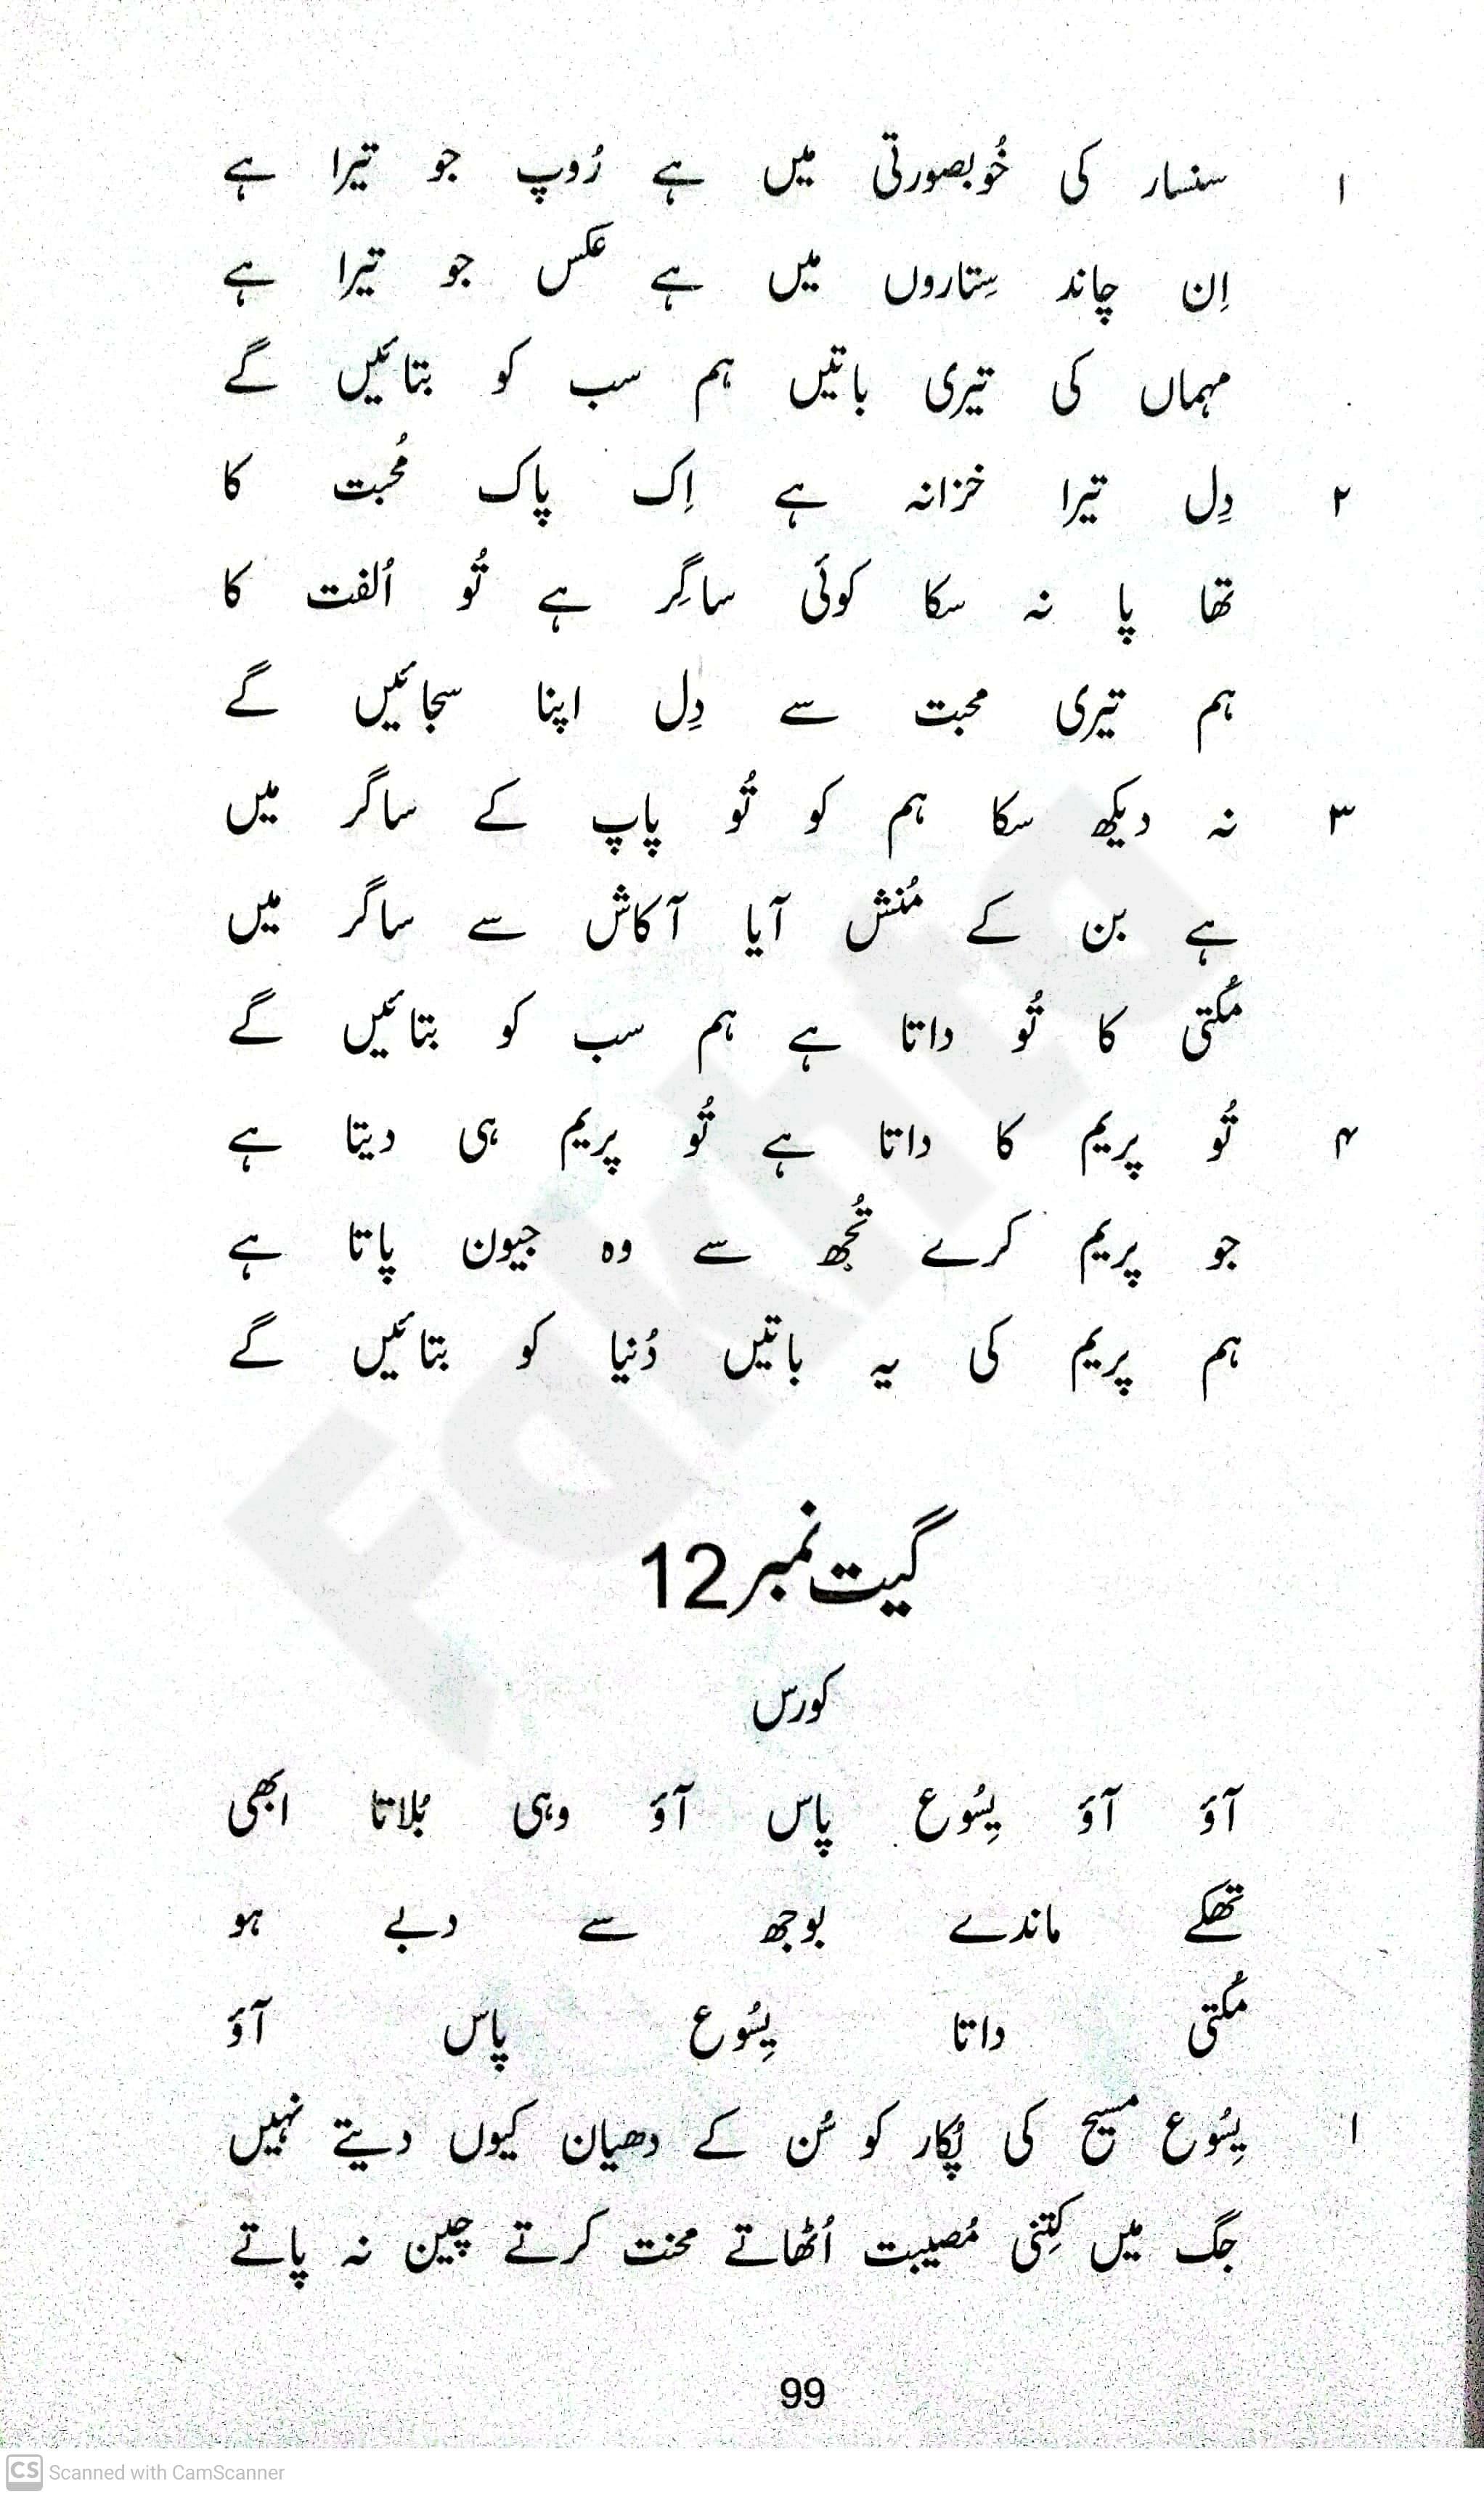 ۱ سنسار کی خُوبصورتی میں ہے رُوپ جو تیرا ہے
اِن چاند سِتاروں میں ہے عکس جو تیرا ہے
مہماں کی تیری باتیں ہم سب کو بتائیں گے
۲ دِل تیرا خزانہ ہے اِک پاک مُحبت کا
تھا پا نہ سکا کوئی ساگِر ہے تُو اُلفت کا
ہم تیری محبت سے دِل اپنا سجائیں گے
۳ نہ دیکھ سکا ہم کو تُو پاپ کے ساگر میں
ہے بن کے مُنش آیا آکاش سے ساگر میں
مُکتی کا تُو داتا ہے ہم سب کو بتائیں گے
۴ تُو پریم کا داتا ہے تُو پریم ہی دیتا ہے
جو پریم کرے تُجھ سے وہ جیون پاتا ہے
ہم پریم کی یہ باتیں دُنیا کو بتائیں گے
گیت نمبر 12
کورس
آؤ آؤ یِسُوع پاس آؤ وہی بُلاتا ابھی
تھکے ماندے بوجھ سے دبے ہو
مُکتی داتا یِسُوع پاس آؤ
۱ یِسُوع مسیح کی پُکار کو سُن کے دھیان کیوں دیتے نہیں
جگ میں کِتنی مُصیبت اُٹھاتے محنت کرتے چین نہ پاتے
99
Fakhta
CS Scanned with CamScanner